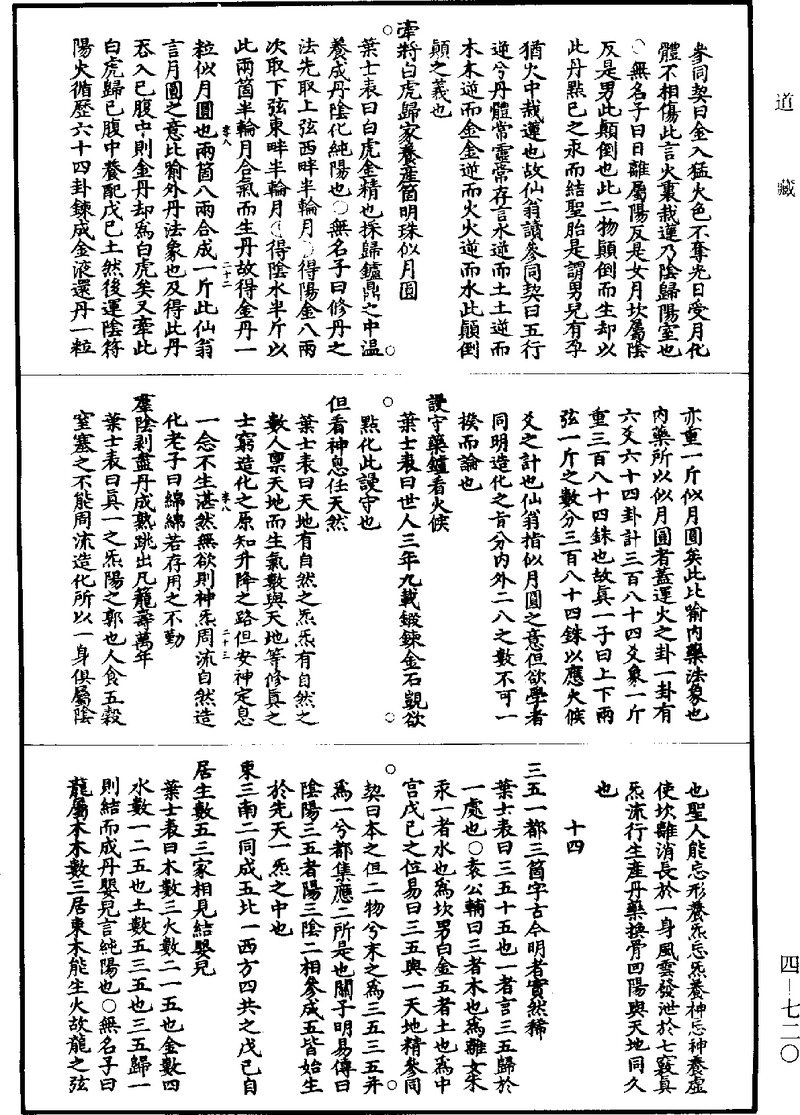 道藏
參同契曰金入猛火色不奪光日受月化
體不相傷此言火裏栽蓮乃陰歸陽室也
○無名子曰日離屬陽反是女月坎屬陰
反是男此顛倒也此二物顛倒而生却以
此丹點已之汞而結聖胎是謂男兒有孕
猶火中栽蓮也故仙翁讀參同契曰五行
逆兮丹體常靈常存言水逆而土土逆而
木木逆而金金逆而火火逆而水此顛倒
顛之義也
牽將白虎歸家養產箇明珠似月圓
葉士表曰白虎金精也採歸鑪鼎之中溫
養成丹陰化純陽也○無名子曰修丹之
法先取上弦西畔半輪月得陽金八兩
次取下弦東畔半輪月得陰水半斤以
此兩箇半輪月合氣而生丹故得金丹一
粒似月圓也兩箇八兩合成一斤此仙翁
言月圓之意比喻外丹法象也及得此丹
吞入已腹中則金丹却爲白虎矣又牽此
白虎歸已腹中養配戊已土然後運陰符
陽火循歷六十四卦鍊成金液還丹一粒
亦重一斤似月圓矣此比喻內藥法象也
內藥所以似月圓者蓋運火之卦一卦有
六爻六十四卦計三百八十四爻象一斤
重三百八十四銖也故眞一子曰上下兩
弦一斤之數分三百八十四銖以應火候
爻之計也仙翁指似月圓之意但欲學者
同明造化之旨分內外二八之數不可一
揆而論也
謾守藥鑪看火候
葉士表曰世人三年九載鍛鍊金石覬欲
點化此謾守也
但看神息任天然
葉士表曰天地有自然之炁炁有自然之
數人禀天地而生氣數與天地等修眞之
士窮造化之原知升降之路但安神定息
一念不生湛然無欲則神炁周流自然造
化老子曰綿綿若存用之不勤
羣陰剥盡丹成熟跳出凡籠壽萬年
葉士表曰眞一之炁陽之郭也人食五穀
窒塞之不能周流造化所以一身俱屬陰
也聖人能忘形養炁忘炁養神忘神養虛
使坎離消長於一身風雲發泄於七竅眞
炁流行生產丹藥換骨回陽與天地同久
也
十四
三五一都三箇字古今明者實然稀
葉士表曰三五十五也一者言三五歸於
一處也○袁公輔曰三者木也爲離女朱
汞一者水也爲坎男白金五者土也爲中
宮戊已之位易曰三五與一天地精參同
契曰本之但二物兮末之爲三五三五并
爲一兮都集應二所是也關子明易傳曰
陰陽三五者陽三陰二相參成五皆始生
於先天一炁之中也
東三南二同成五北一西方四共之戊已自
居生數五三家相見結嬰兒
葉士表曰木數三火數二一五也金數四
水數一二五也土數五三五也三五歸一
則結而成丹嬰兒言純陽也○無名子曰
龍屬木木數三居東木能生火故龍之弦
叅八
二十二
叅八
二十三
四-七二〇